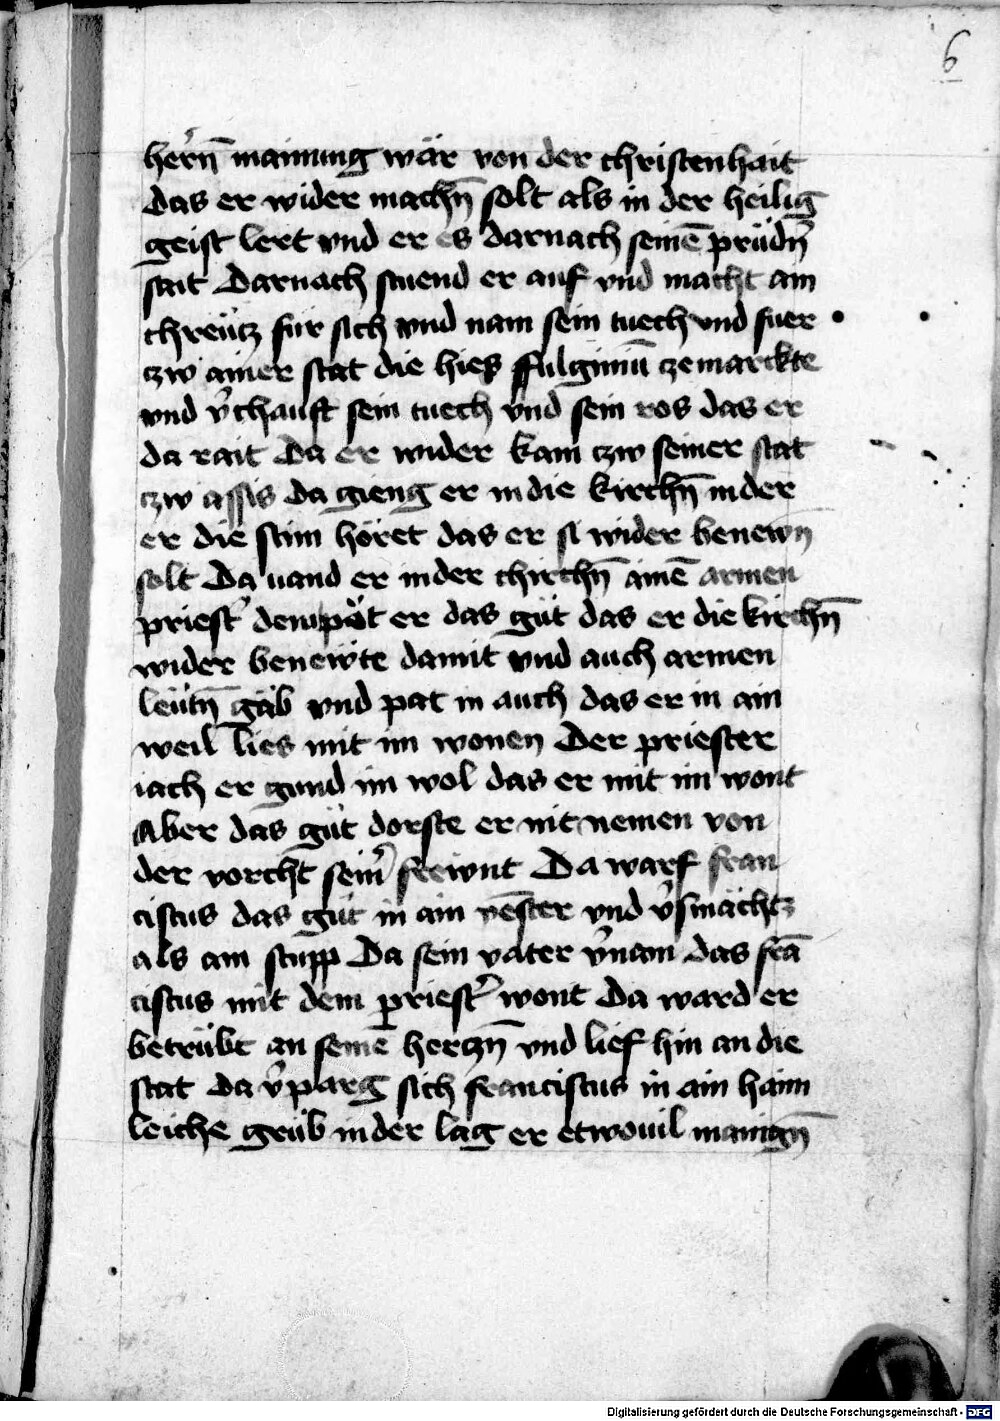 6
herñ mainung wär von der christenhait
das er wider machñ solt als in der heilig̃
geist lert vnd er es darnach seinē prüdñ
sait Darnach stuend er auf vnd macht ain
chreütz für sich vnd nam sein tuech vnd fuer
czw ainer stat die hies ffulginiū ze marckte
vnd v̾chauft sein tuech vnd sein ros das er
da rait Da er wider kam czw seiner stat
czw assis da gieng er in die kirchñ in der
er die stim höret das er si wider benewñ
solt Da uand er in der chirchñ ainē armen
priest̾ dem pöt er das güt das er die kirchñ
wider benewte damit vnd auch armen
leütñ gäb vnd pat in auch das er in ain
weil lies mit im wonen Der priester
iach er gund im wol das er mit im wont
Aber das güt dorste er nit nemen von
der vorcht sein̾ frewnt Da warf fran
ciscus das güt in ain venster vnd v̾smächtz
als ain stupp Da sein vater v̾nam das frā
ciscus mit dem priest̾ wont Da ward er
betrübt an seinē herczñ vnd lief hin an die
stat Da v̾parg sich franciscus in ain haim
leiche grüb in der lag er etwouil manigñ
Digitalisierung gefördert durch die Deutsche Forschungsgemeinschaft - DFG